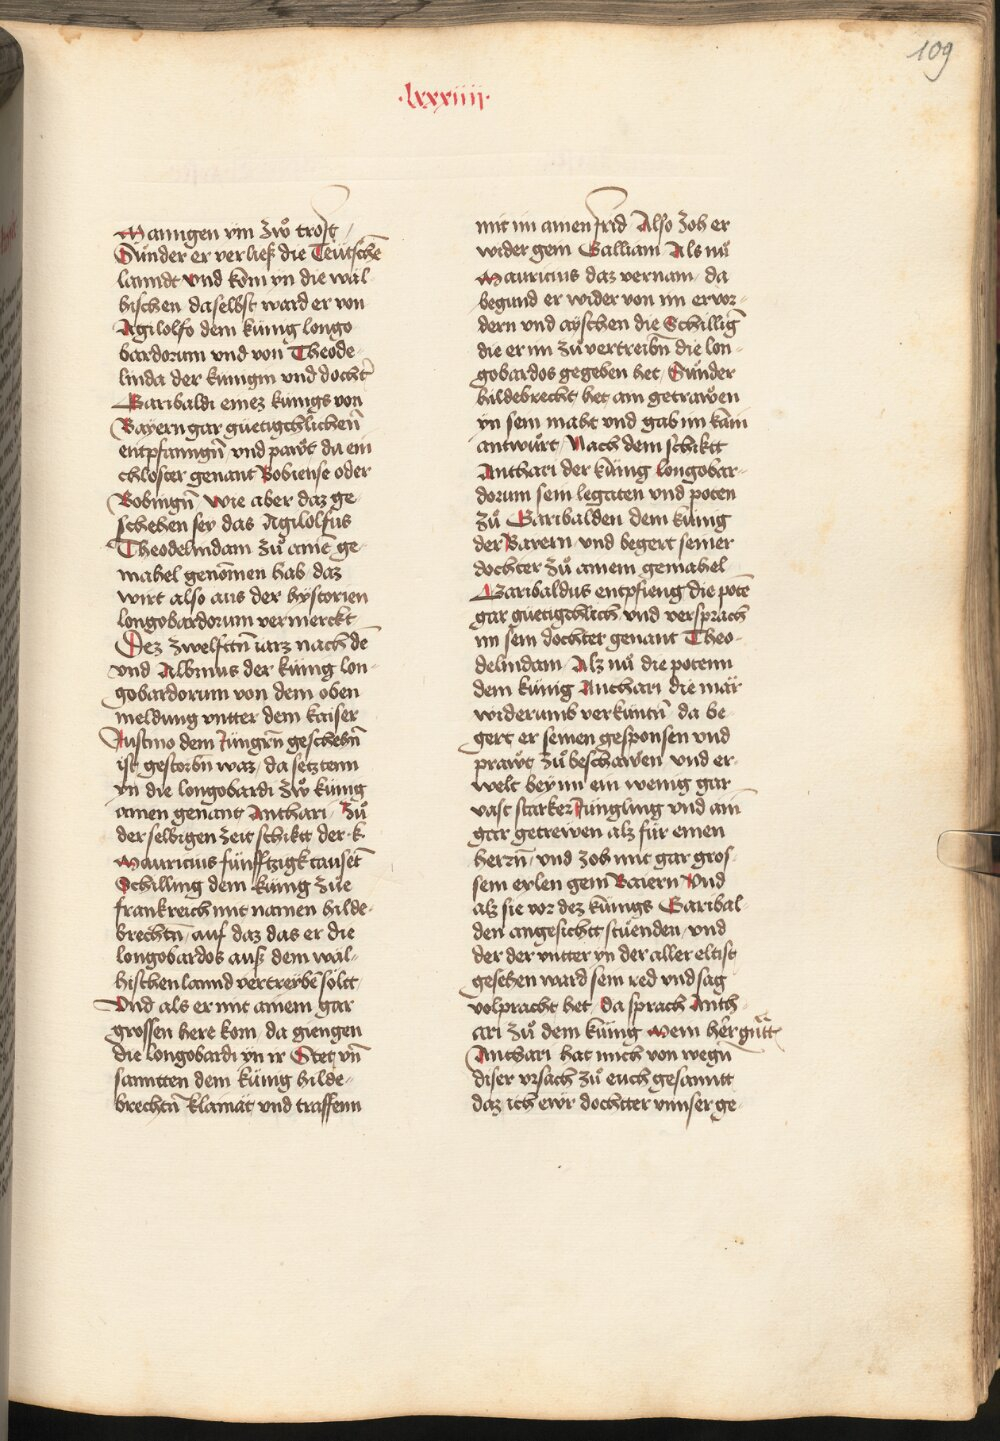 109
·lxxxiiij·
Manigen ym zwͦ trost /
Sunder er verließ die Teutschē
lanndt vnd kom yn die wal-
hischen daselbst ward er von
Agilolfo dem kunig longo
bardorum vnd von Theode-
linda der kunigin vnd docht̄
Garibaldi einez kunigs von
Bayern gar guetigchlichen̄
entpfanngn̄ vnd pawt da ein
chloster genant Bobiense oder
Bobingn̄ Wie aber daz ge-
schehen sey das Agilolfus
Theodelindam zuͦ ainē ge-
mahel genomen hab daz
wirt also aus der hystorien
longobardorum vermerckt
Dez zwelfttn̄ iarz nach dē
vnd Albinus der kunig lon-
gobardorum von dem oben
meldung vntter dem kaiser
Justino dem Jungrn̄ geschehn̄
ist gestorbn waz / da setztenn
yn die longobardi zwͦ kunig
ainen genant Anthari / Zuͦ
der selbigen zeit schikt der k.
Mauricius funfftzigk tausēt
Schilling dem kunig zue
frankreich mit namen hilde-
brechtn̄ / auf daz das er die
longobardos auß dem wal-
hischen lannd vertreybē solt
Vnd als er mit ainem gar
grossen here kom / da giengen
die longobardi yn ir Stet vn̄
sanntten dem kunig hilde-
brechtn̄ klainat vnd traffenn
mit im ainen frid Also zoh er
wider gem Galliam Als nuͦ
Mauricius daz vernam / da
begund er wider von im ervor-
dern vnd ayschen die Schilliḡ
die er im zuͦ vertreibn̄ die lon-
gobardos gegeben het / Sunder
hildebrecht het ain getrawen
yn sein maht vnd gab im kain
antwurt / Nach dem schikt
Anthari der kunig longobar-
dorum sein legaten vnd poten
zuͦ Garibalden dem kunig
der Bayern / vnd begert seiner
dochter zuͦ ainem gemahel
Garibaldus entpfieng die potē
gar guetigchlich vnd versprach
im sein dochter genant Theo-
delindam / Alz nuͦ die potenn
dem kunig Anthari die mar
widerumb verkuntn̄ da be-
gert er seinen gesponsen vnd
prawt zuͦ beschawen vnd er-
welt bey im ein wenig gar
vast starker Jungling vnd ain
gar getrewen alz fur einen
herrn̄ / vnd zoh mit gar gros-
sem erlen gem Baiern Vnd
alz sie vor dez kunigs Garibal-
den angesicht stuenden / vnd
der der vntter yn der aller eltist
gesehen ward sein red vnd sag
volpracht het / da sprach Anth-
ari zuͦ dem kunig Mein her
Anthari hat mich von wegn̄
diser vrsach zuͦ euch gesanntt
daz ich ewr dochtter vnnser ge-